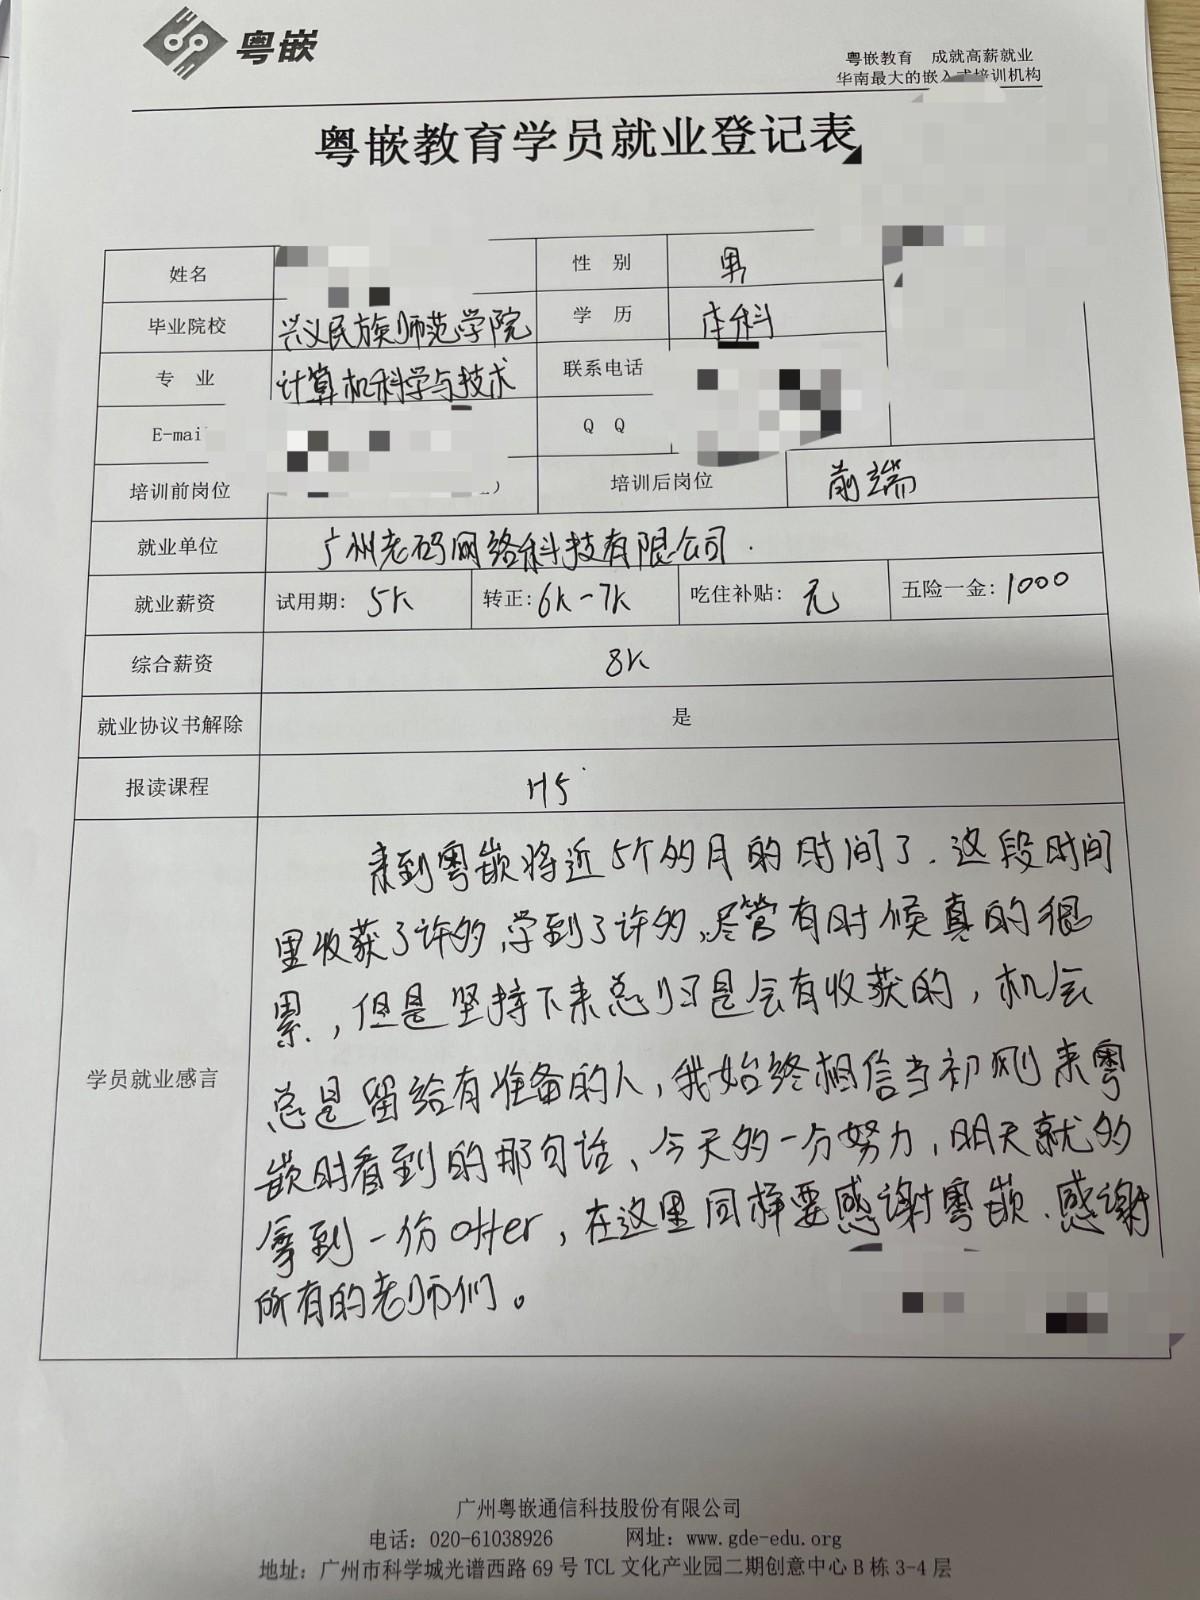 粤嵌
粤嵌教育 成就高薪就业
华南最大的嵌入式培训机构
粤嵌教育学员就业登记表
姓名 性 别 男
毕业院校 兴义民族师范学院 学 历 本科
专 业 计算机科学与技术 联系电话
E-mail Q Q
培训前岗位 培训后岗位 前端
就业单位 广州老码网络科技有限公司.
就业薪资 试用期: 5K 转正: 6K-7K 吃住补贴: 元 五险一金: 1000
综合薪资 8K
就业协议书解除 是
报读课程 H5
学员就业感言
来到粤嵌将近5个多月的时间了.这段时间
里收获了许多,学到了许多,尽管有时候真的很
累,但是坚持下来总归是会有收获的,机会
总是留给有准备的人,我始终相信当初刚来粤
嵌时看到的那句话、今天多一分努力,明天就多
拿到一份offer,在这里同样要感谢粤嵌.感谢
所有的老师们。
广州粤嵌通信科技股份有限公司
电话: 020-61038926 网址: www.gde-edu.org
地址: 广州市科学城光谱西路69号TCL文化产业园二期创意中心B栋3-4层